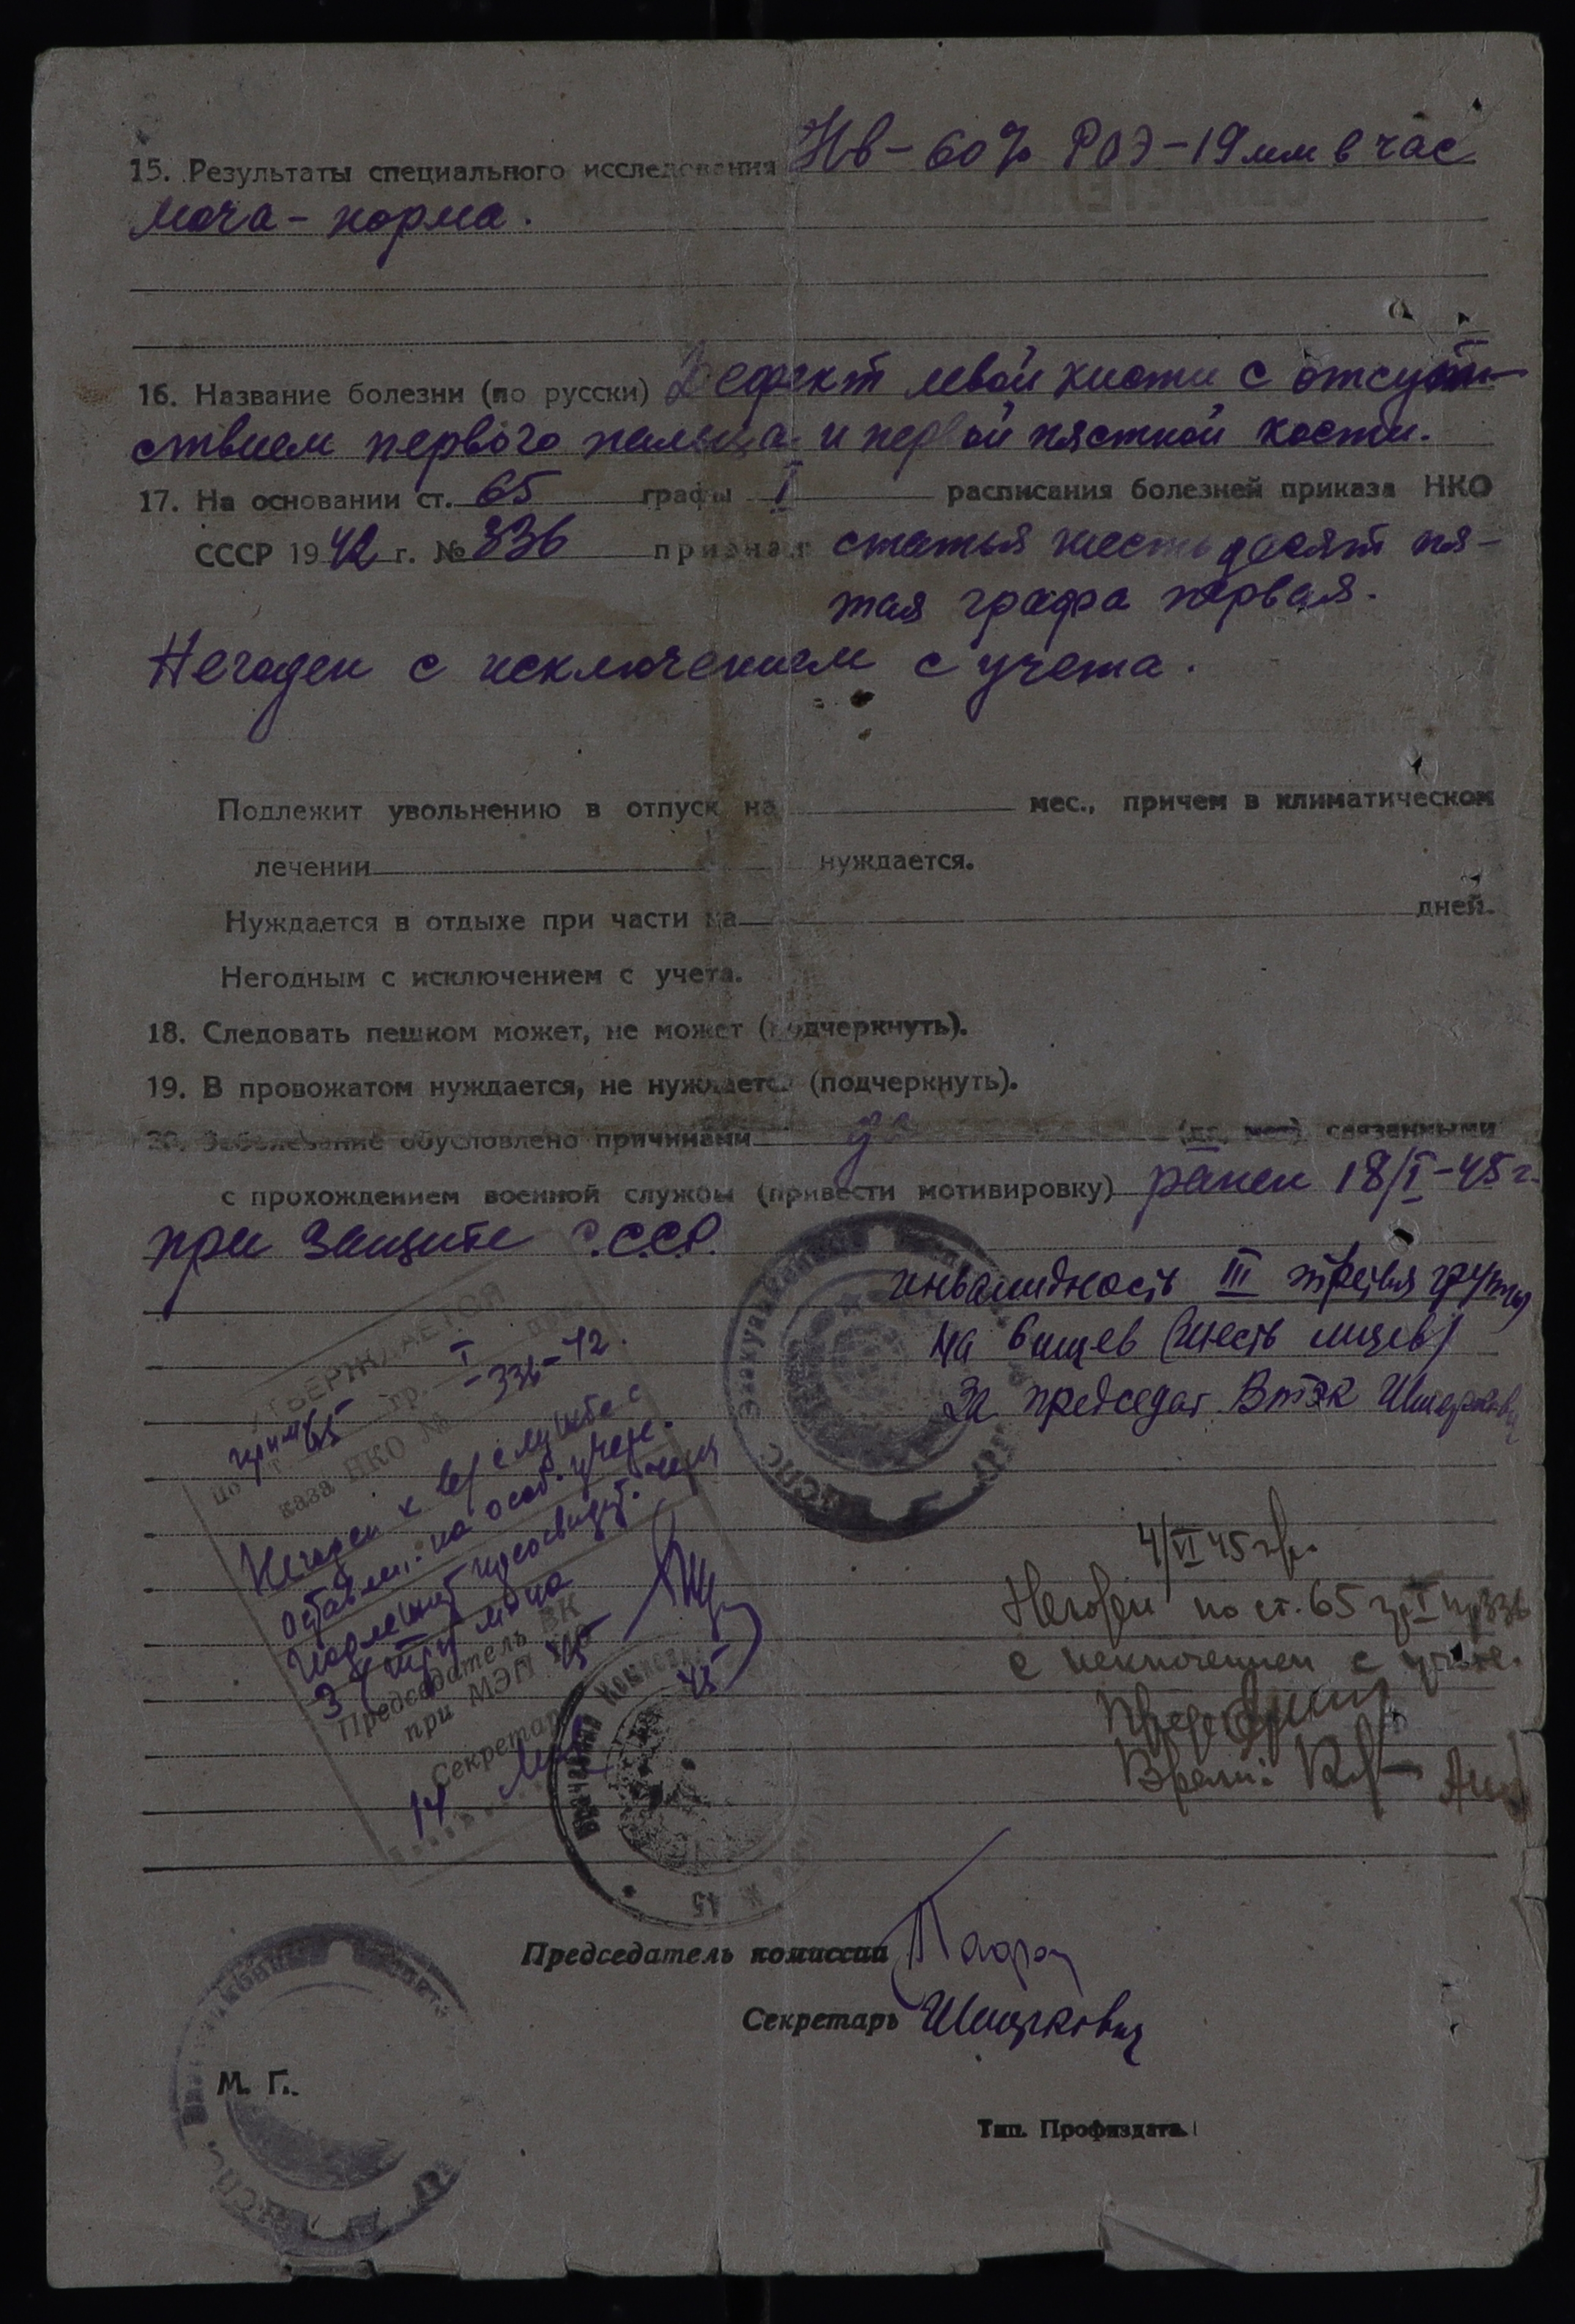 15. Результаты специального исследования Нв - 60% РОЭ - 19 мм в час
Моча - норма.
16. Название болезни (по русски) Дефект левой кисти с отсут-
ствием первого пальца и первой пястной кости.
17. На основании ст. 65 графы I расписания болезней приказа НКО
СССР 1942 г. № 336 признан статья шестьдесят пя-
тая графа первая.
Негоден с исключением с учета.
Подлежит увольнению в отпуск на мес., причем в климатическом
лечении нуждается.
Нуждается в отдыхе при части на дней.
Негодным с исключением с учета.
18. Следовать пешком может, не может (подчеркнуть).
19. В провожатом нуждается, не нуждается (подчеркнуть).
20. Заболевание обусловлено причинами да (да, нет) связанными
с прохождением военной службы (привести мотивировку) ранен 18/I-45 г.
при защите С.С.С.Р.
инвалидность III третья группы
на 6 мцев (шесть мцев)
За председат. Втэк
УТВЕРЖДАЕТСЯ
по ст. 65 гр. I
каза НКО № 336-42
Негоден к в/службе с
оставлен. на особ. учете.
Подлежит переосвидет.
3 (три) м-ца
Председатель ВК
при МЭП
Секретарь
14 45
4/VI 45 г.
Негоден по ст. 65 гр I пр 336
с исключением с учета.
Пред
Врачи:
Председатель комиссии
Секретарь Шицкович
М. Г.
Тип. Профиздата